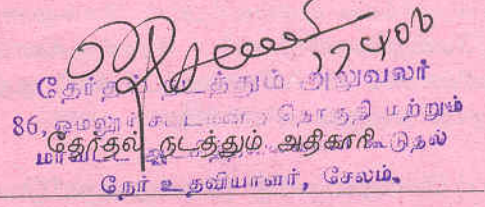 17400
தேர்தல் நடத்தும் அலுவலர்
86, ஓமலூர் சட்டமன்ற தொகுதி மற்றும்
தேர்தல் நடத்தும் அதிகாரி
மாவட்ட கூடுதல்
நேர் உதவியாளர், சேலம்.